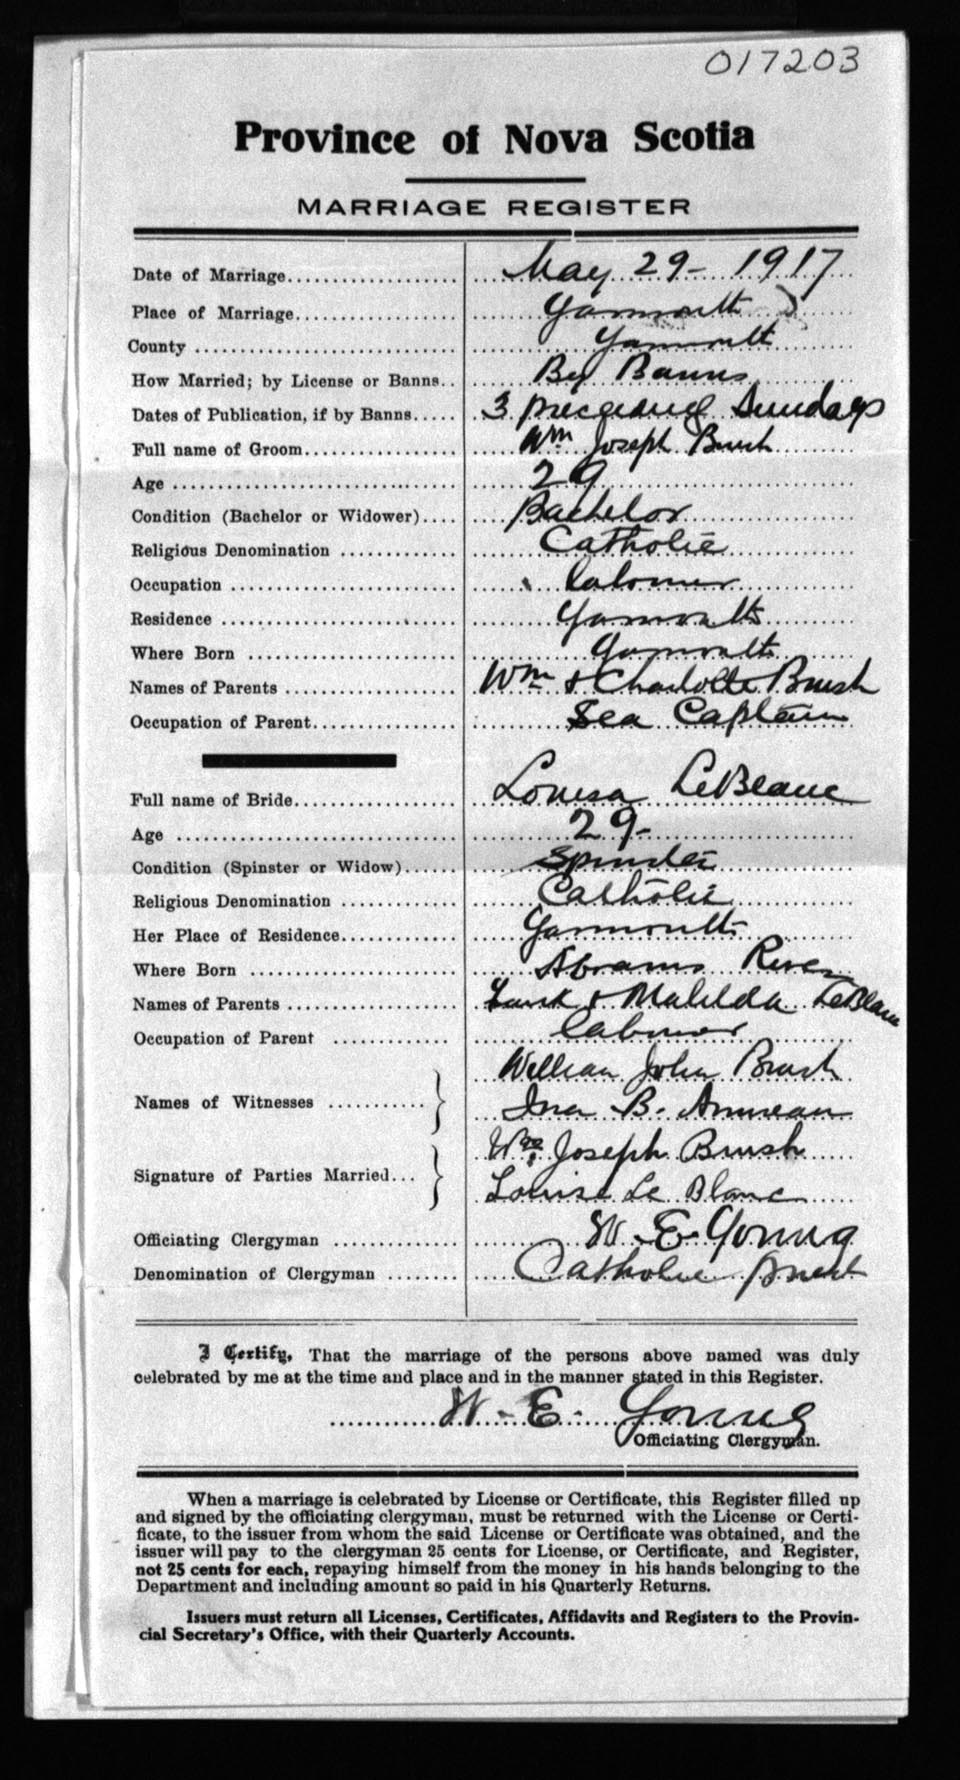 017203
Province of Nova Scotia
MARRIAGE REGISTER
Date of Marriage May 29 - 1917
Place of Marriage Yarmouth
County Yarmouth
How Married; by License or Banns By Banns
Dates of Publication, if by Banns 3 preceding Sundays
Full name of Groom Wm Joseph Brush
Age 29
Condition (Bachelor or Widower) Bachelor
Religious Denomination Catholic
Occupation labourer
Residence Yarmouth
Where Born Yarmouth
Names of Parents Wm & Charlotte Brush
Occupation of Parent Sea Captain
Full name of Bride Louisa LeBlanc
Age 29 -
Condition (Spinster or Widow) Spinster
Religious Denomination Catholic
Her Place of Residence Yarmouth
Where Born Abrams River
Names of Parents & Matilda LeBlanc
Occupation of Parent labourer
William John Brush
Names of Witnesses
Ina B. Amireau
Wm Joseph Brush
Signature of Parties Married
Louise Le Blanc
Officiating Clergyman W. E. Young
Denomination of Clergyman Catholic Priest
I Certify, That the marriage of the persons above named was duly
celebrated by me at the time and place and in the manner stated in this Register.
W. E. Young
Officiating Clergyman.
When a marriage is celebrated by License or Certificate, this Register filled up
and signed by the officiating clergyman, must be returned with the License or Certi-
ficate, to the issuer from whom the said License or Certificate was obtained, and the
issuer will pay to the clergyman 25 cents for License, or Certificate, and Register,
not 25 cents for each, repaying himself from the money in his hands belonging to the
Department and including amount so paid in his Quarterly Returns.
Issuers must return all Licenses, Certificates, Affidavits and Registers to the Provin-
cial Secretary's Office, with their Quarterly Accounts.